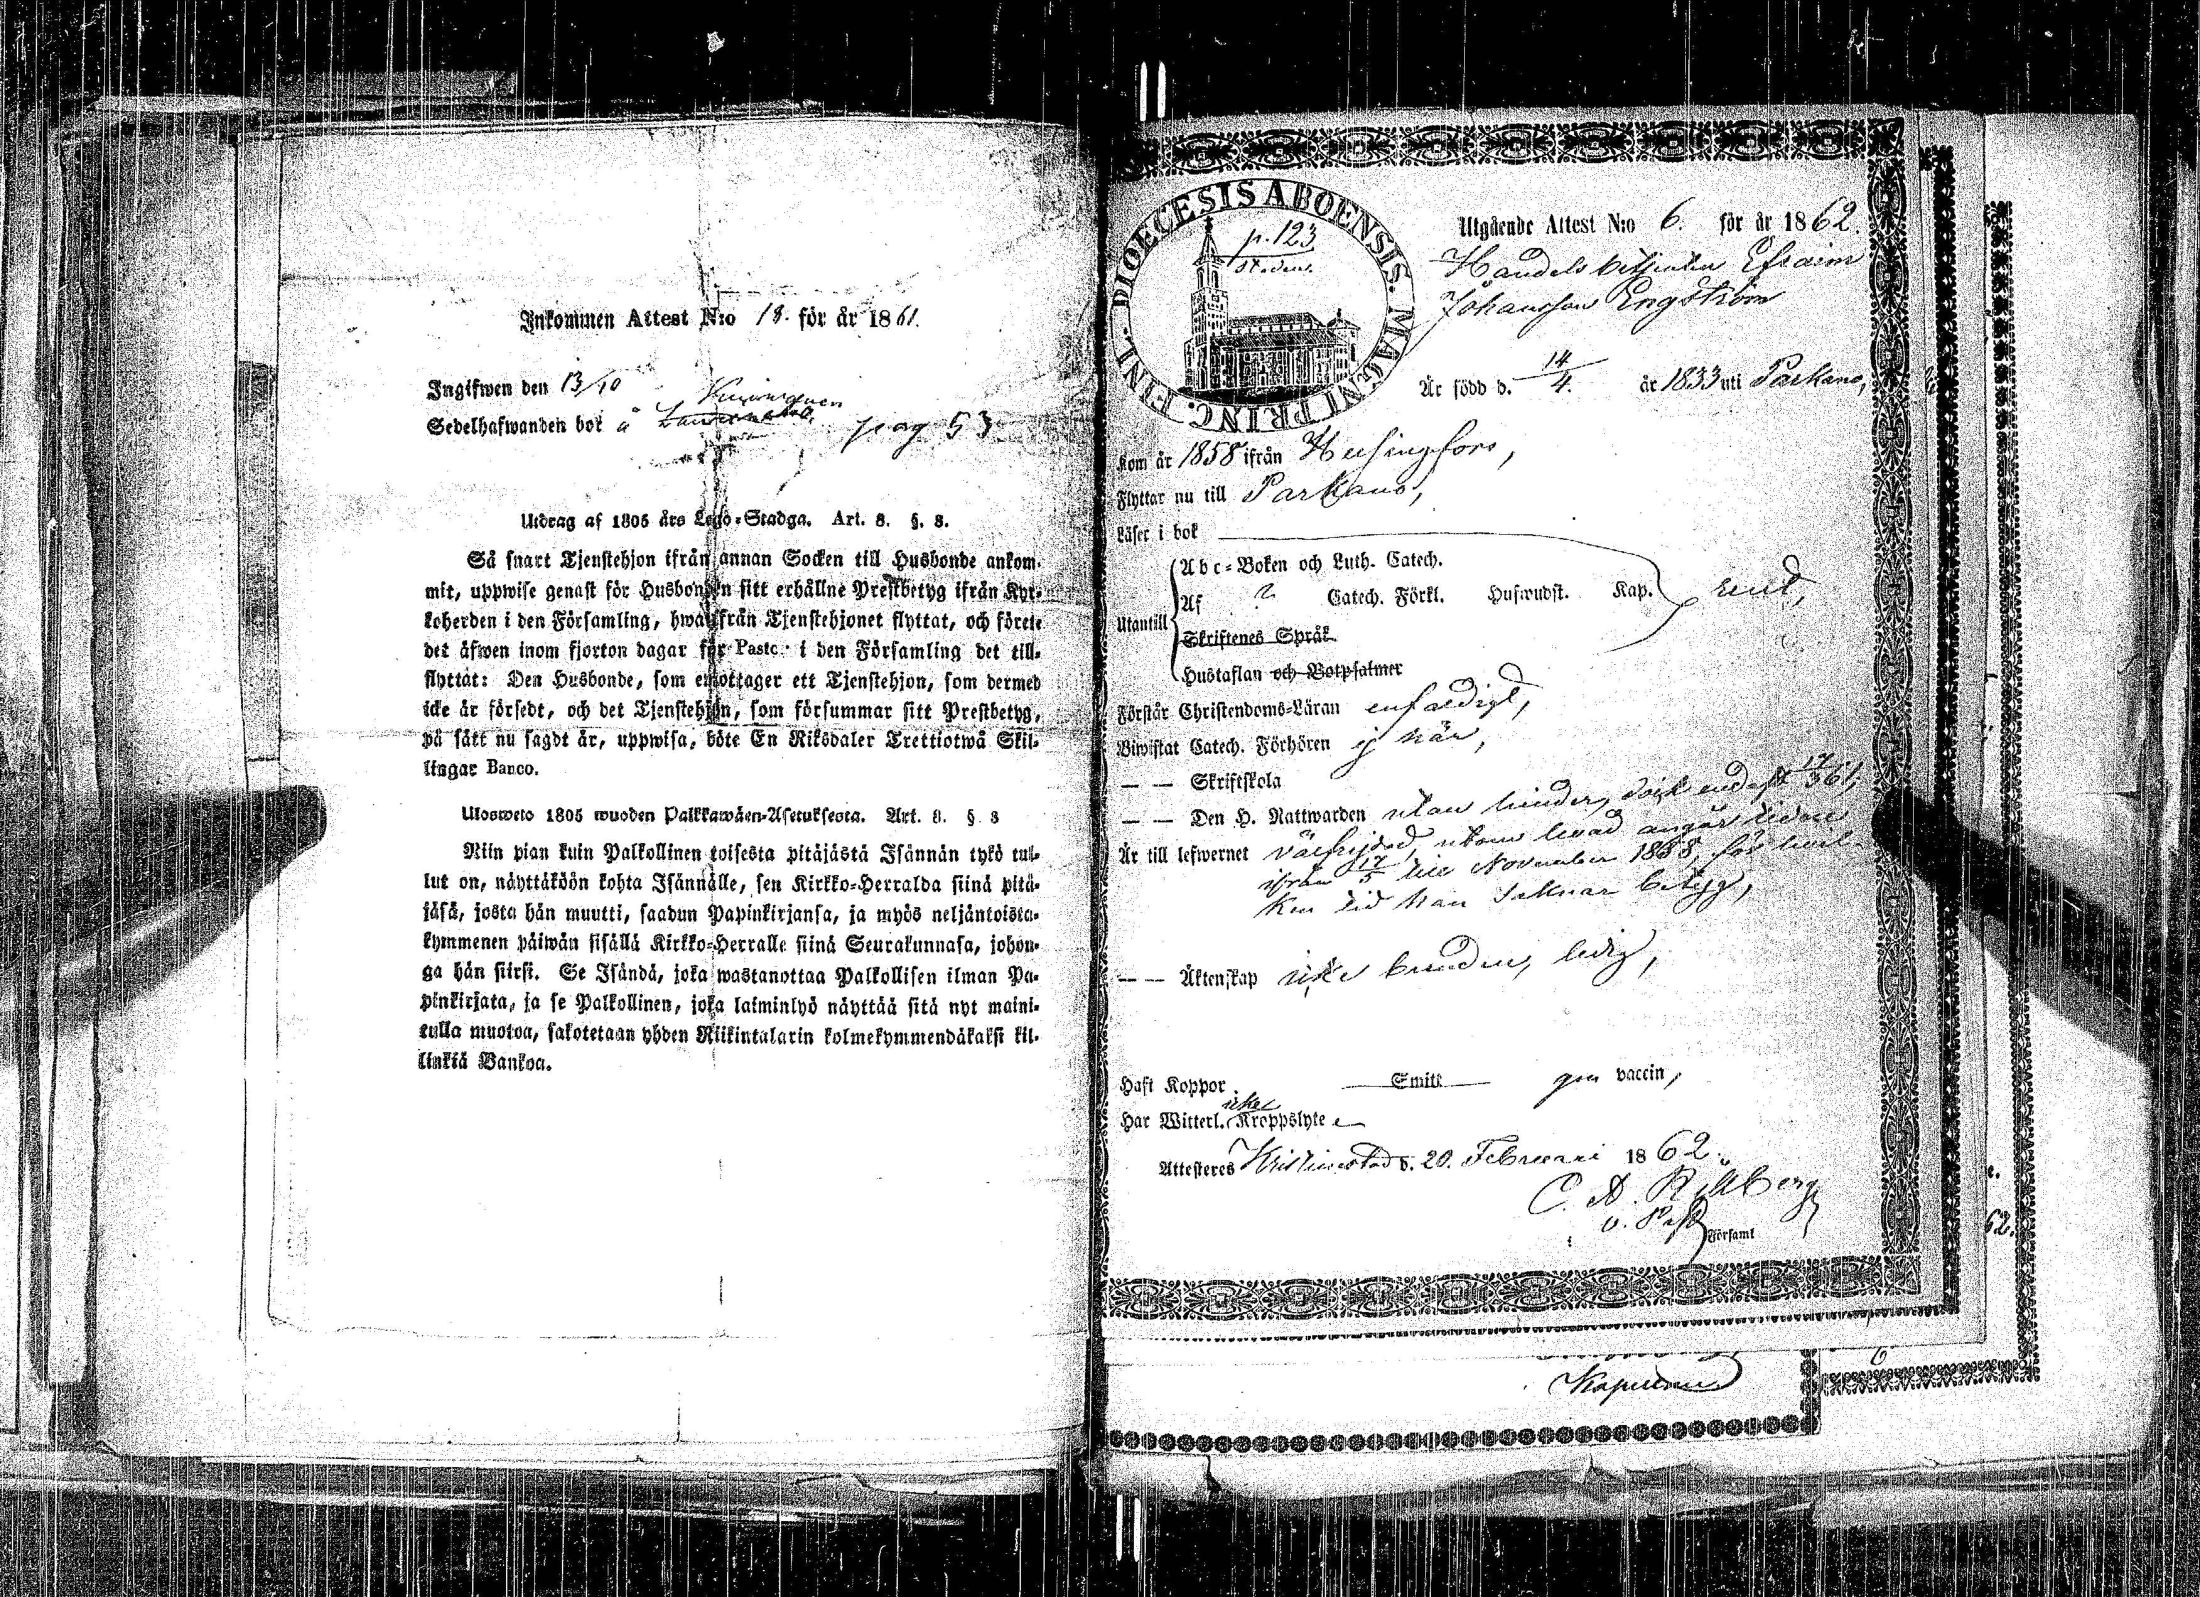 Inkommen Attest N:o 18. för år 1861.
Ingifwen den 13/10
Sedelhafwanden bor å
pag 53
Utdrag af 1805 års Lego-Stadga. Art. 8. §. 8.
Så snart Tjenstehjon ifrån annan Socken till Husbonde ankom-
mit, uppwise genast för Husbonden sitt erhållne Prestbetyg ifrån Kyr-
koherden i den Församling, hwarifrån Tjenstehjonet flyttat, och förete
det äfwen inom fjorton dagar för Pastor i den Församling det till-
flyttat: Den Husbonde, som emottager ett Tjenstehjon, som dermed
icke är försedt, och det Tjenstehjon, som försummar sitt Prestbetyg,
på sätt nu sagdt är, uppwisa, böte En Riksdaler Trettiotwå Skil-
lingar Banco.
Ulosweto 1805 wuoden Palkkawäen-Asetuksesta. Art. 8. § 8
Niin pian kuin Palkollinen toisesta pitäjästä Isännän tykö tul-
lut on, näyttäköön kohta Isännälle, sen Kirkko-Herralda siinä pitä-
jäsä, josta hän muutti, saadun Papinkirjansa, ja myös neljäntoista-
kymmenen päiwän sisällä Kirkko-Herralle siinä Seurakunnasa, johon-
ga hän siirsi. Se Isändä, joka wastanottaa Palkollisen ilman Pa-
pinkirjata, ja se Palkollinen, joka laiminlyö näyttää sitä nyt maini-
tulla muotoa, sakotetaan yhden Riikintalarin kolmekymmendäkaksi kil-
linkiä Bankoa.
DIOECESIS ABOENSIS. MAGNI PRINC. FINL.
p. 123
Utgående Attest N:o 6. för år 1862.
Handelsbetjenten Efraim
Johansson Engström
Är född d. 14/4. år 1833 uti Parkano,
Kom år 1858 ifrån Helsingfors,
Flyttar nu till Parkano,
Läser i bok
Abc-Boken och Luth. Catech.
Af 2 Catech. Förkl. Hufwudst. Kap. rent,
Utantill
Skriftenes Språk
Hustaflan och Botpsalmer
Förstår Christendoms-Läran enfaldigt,
Biwistat Catech. Förhören ej här,
— — Skriftskola
— — Den H. Nattwarden utan hinder, dock endast 17/3 61,
Är till lefwernet välfrejdad, utom hvad angår tiden
ifrån 17/5 till November 1858, för hvil-
ken tid han saknar betyg,
— — Äktenskap icke bunden, ledig,
Haft Koppor. Smitt gm vaccin,
icke
Har Witterl. Kroppslyte
Attesteres Kristinestad d. 20. Februari 1862.
C. A.
v. Past
Församl
62.
Kapellan